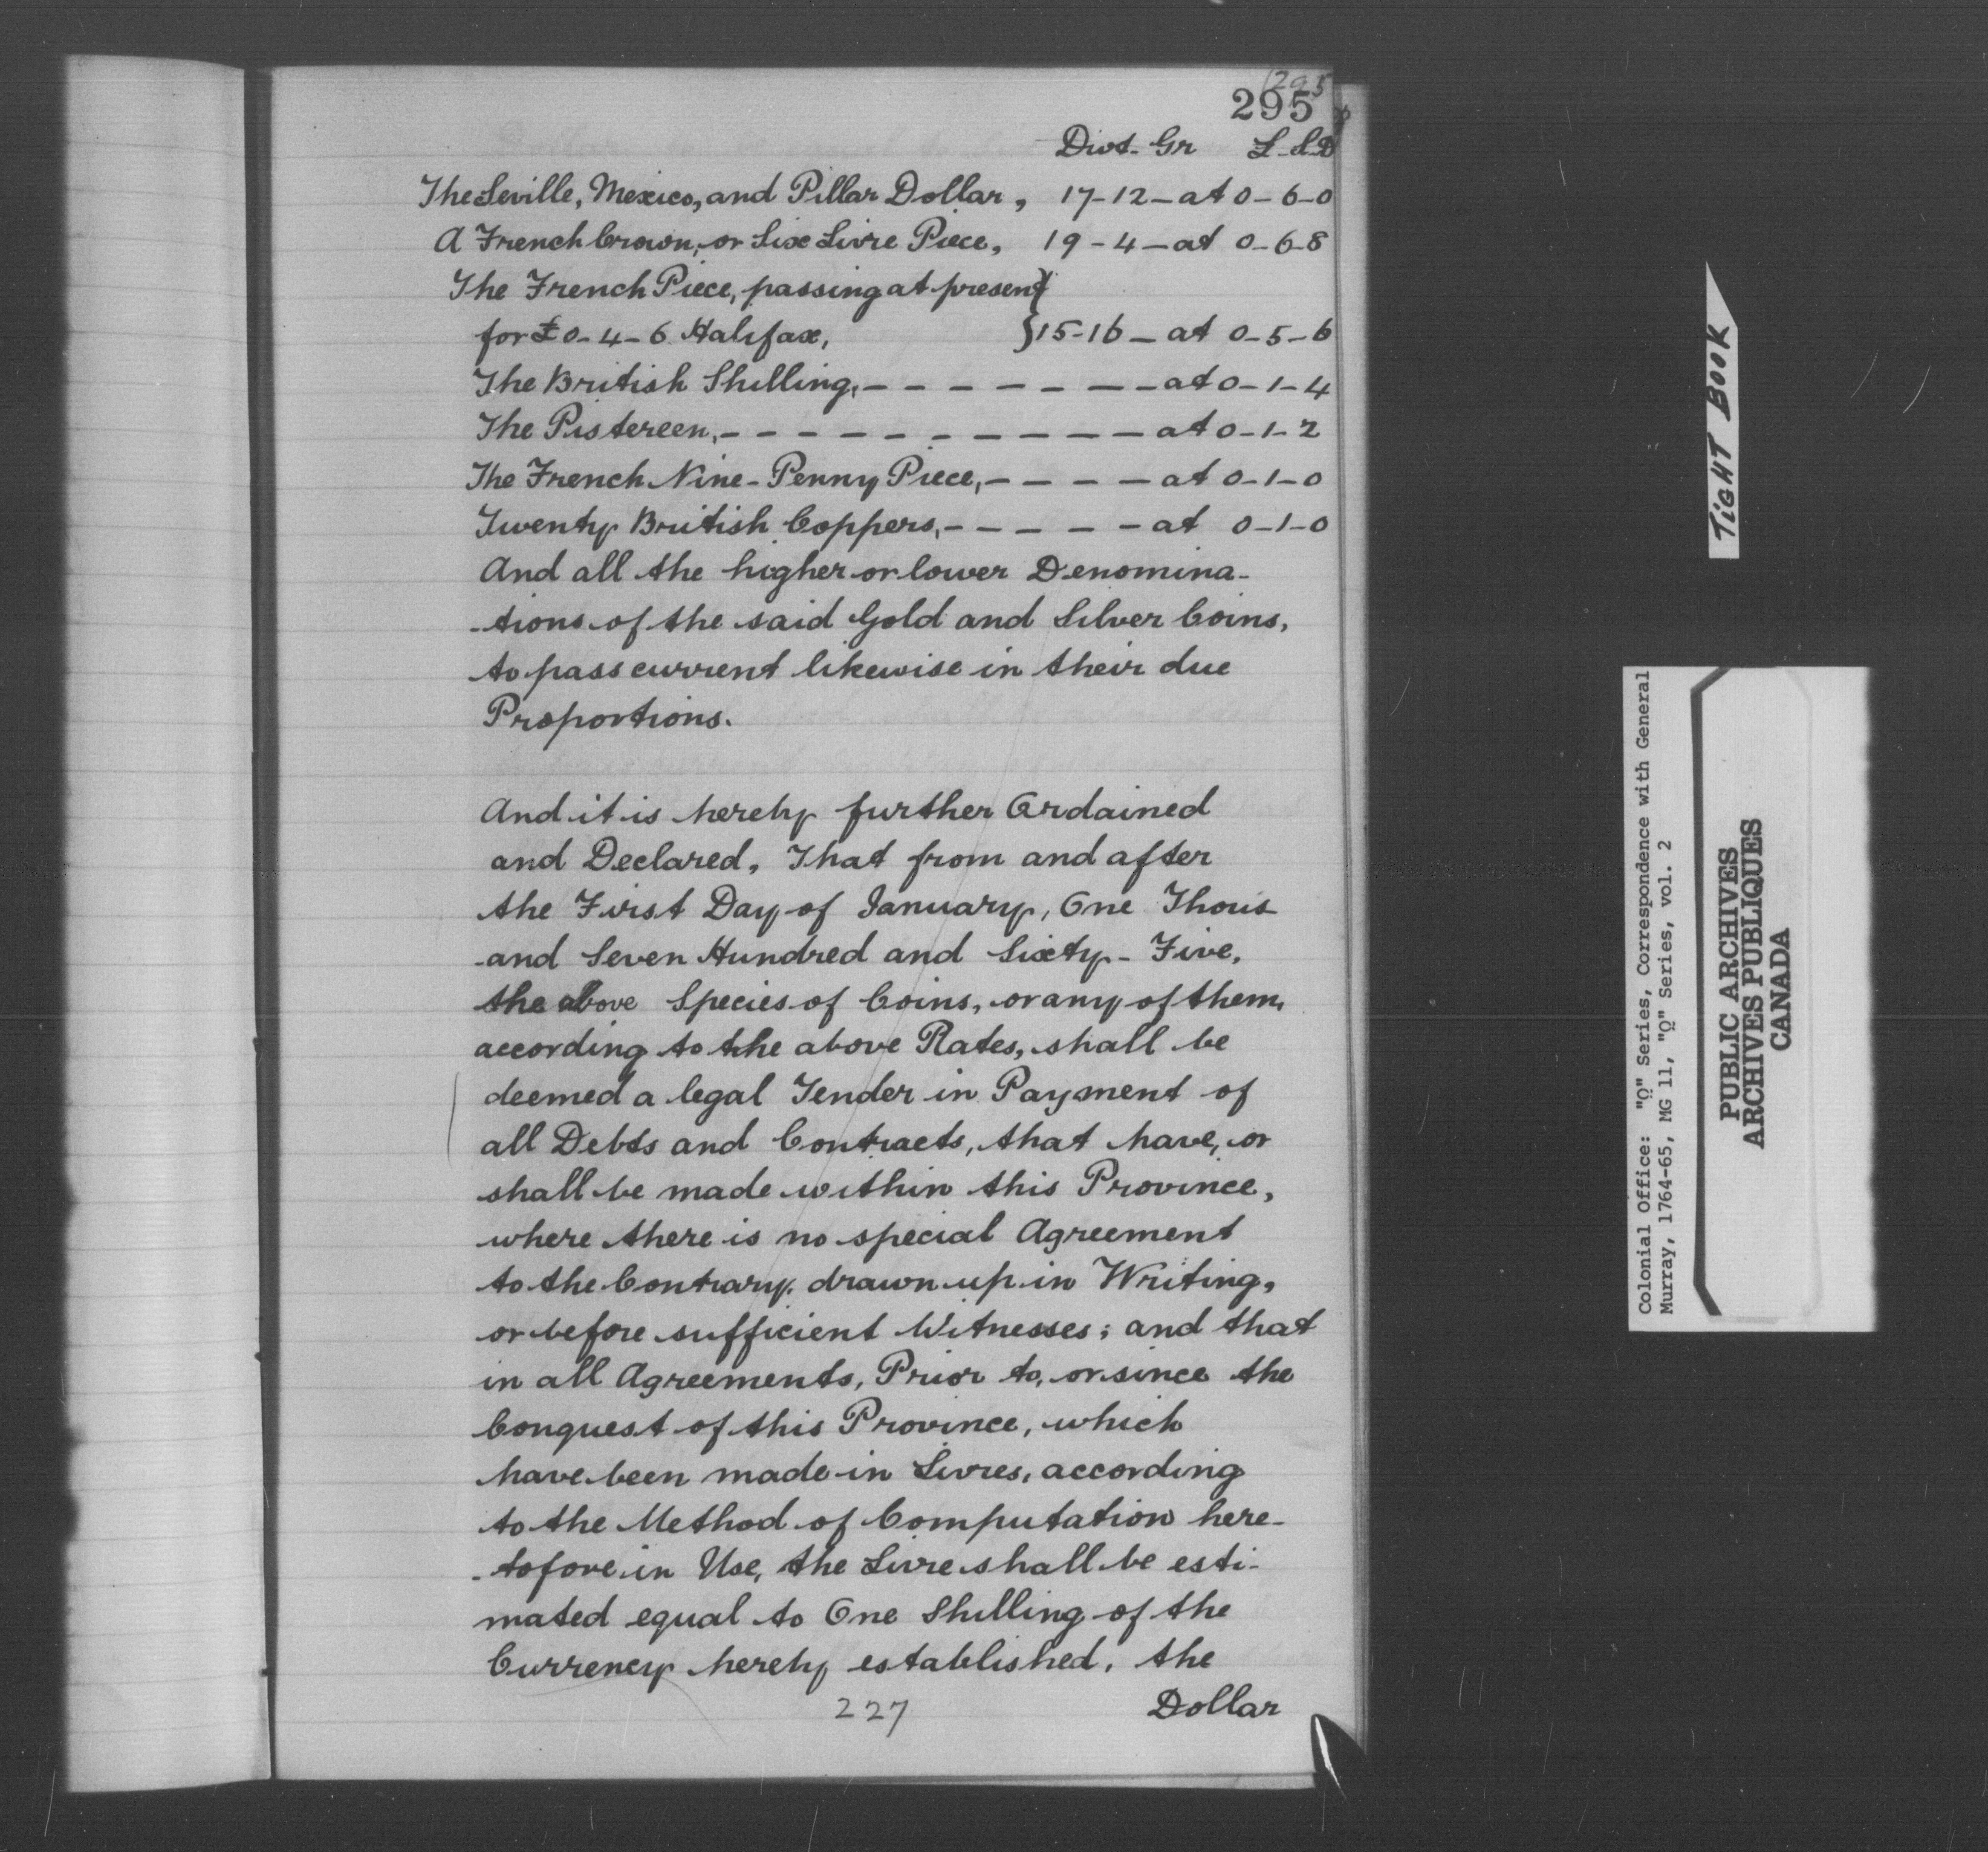 (295
295
Dwt. Gr L-S-D
The Seville, Mexico, and Pillar Dollar, 17-12-at 0-6-0
A French Crown, or Six Livre Piece, 19-4-at 0-6-8
The French Piece, passing at present }
for £0-4-6 Halifax, } 15-16-at 0-5-6
The British Shilling, - - - - - - - at 0-1-4
The Pistereen, - - - - - - - - - - at 0-1-2
The French Nine-Penny Piece, - - - - at 0-1-0
Twenty British Coppers, - - - - - at 0-1-0
And all the higher or lower Denomina-
-tions of the said Gold and Silver Coins,
to pass current likewise in their due
Proportions.
And it is hereby further Ordained
and Declared, That from and after
the First Day of January, One Thous
-and Seven Hundred and Sixty-Five,
the above Species of Coins, or any of them,
according to the above Rates, shall be
deemed a legal Tender in Payment of
all Debts and Contracts, that have, or
shall be made within this Province,
where there is no special Agreement
to the Contrary drawn up in Writing,
or before sufficient Witnesses; and that
in all Agreements, Prior to, or since the
Conquest of this Province, which
have been made in Livres, according
to the Method of Computation here-
-tofore in Use, the Livre shall be esti-
mated equal to One Shilling of the
Currency hereby established, the
Dollar
227
TIGHT BOOK
Colonial Office: "Q" Series, Correspondence with General
Murray, 1764-65, MG 11, "Q" Series, vol. 2
PUBLIC ARCHIVES
ARCHIVES PUBLIQUES
CANADA